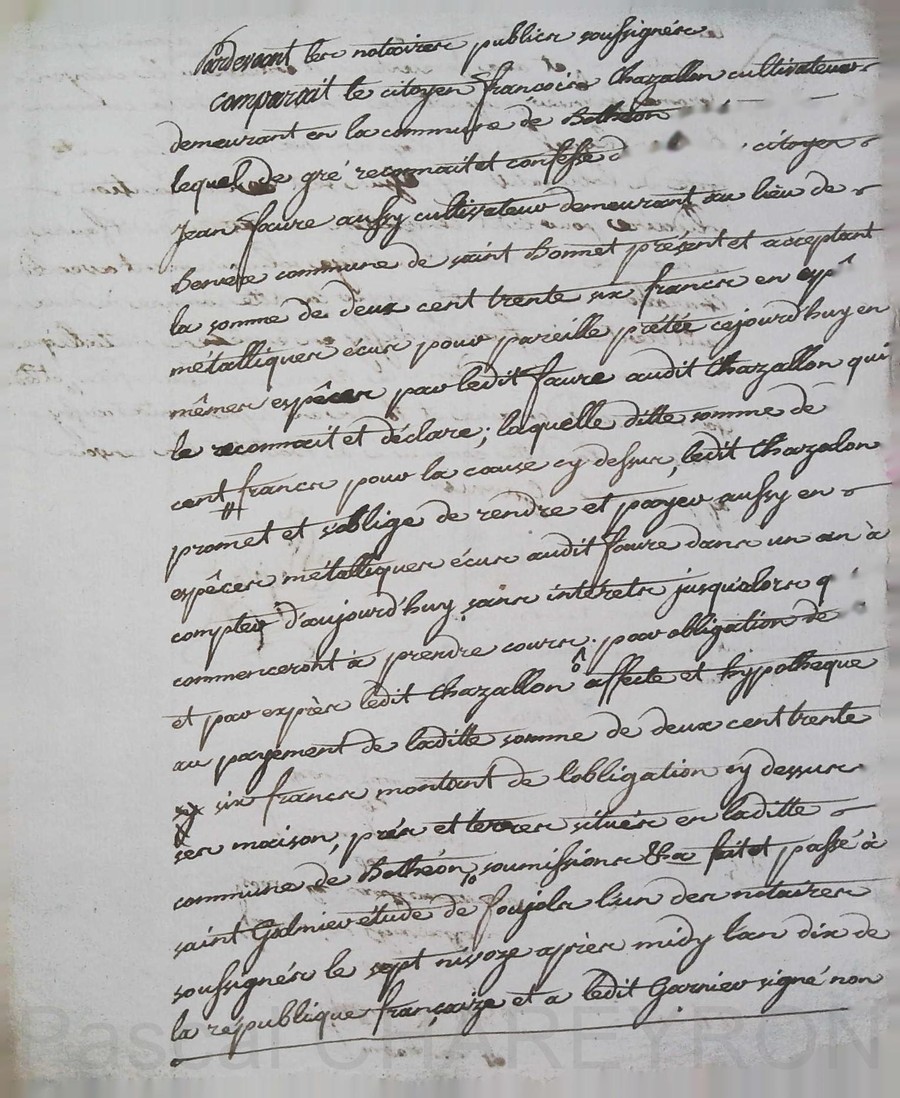 Pardevant les notaires publics soussignés
comparait le citoyen françois Chazallon cultivateur
demeurant en la commune de Bothéon
lequel de gré reconnait et confesse d citoyen
Jean faure aussy cultivateur demeurant au lieu de
commune de saint Bonnet présent et acceptant
la somme de deux cent trente six francs en esp
métalliques écus pour pareille prétée cejourd'huy en
mêmes espêces par ledit faure audit Chazallon qui
le reconnait et déclare; laquelle ditte somme de
cent francs pour la cause cy dessus, ledit Chazalon
promet et s'oblige de rendre et payer aussy en
espêces métalliques écus audit faure dans un an à
compter d'aujourd'huy sans intérêts jusqu'alors q
commenceront à prendre cours; pour obligation de
et par exprès ledit Chazallon affecte et hypotheque
au payement de laditte somme de deux cent trente
six francs montant de l'obligation cy dessus
ses maison, prés et terres situés en laditte
commune de Bothéon, soumissions fait et passé à
saint Galmier étude de foujols l'un des notaires
soussignés le sept nivoze après midy l'an dix de
la république françaize et a ledit Garnier signé non
Pascal CHAREYRON